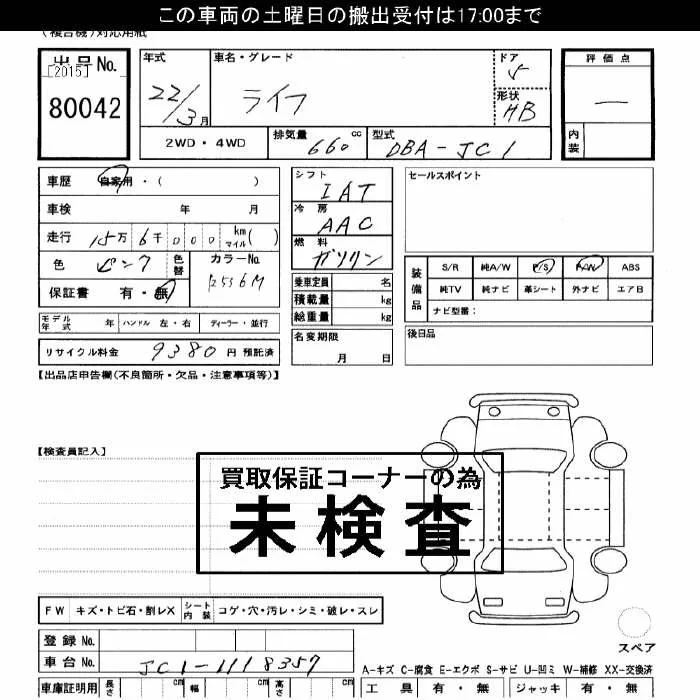 この車両の土曜日の搬出受付は17:00まで
(複合機)対応用紙
出品No. [2015] 80042
年式 22/3月
車名・グレード ライフ
ドア 5
形状 HB
評価点 —
内装
2WD・4WD 排気量 660 cc 型式 DBA-JC1
車歴 自家用・( )
車検 年 月
走行 15万 6千 000 km マイル( )
色 ピンク 色替 カラーNo. R556M
保証書 有・無
モデル年式 年 ハンドル 左・右 ディーラー・並行
リサイクル料金 9380 円 預託済
シフト IAT
冷房 AAC
燃料 ガソリン
乗車定員 名
積載量 kg
総重量 kg
名変期限 月 日
セールスポイント
装備品 S/R 純A/W P/S P/W ABS
純TV 純ナビ 革シート 外ナビ エアB
ナビ型番:
後日品
【出品店申告欄(不良箇所・欠品・注意事項等)】
【検査員記入】
買取保証コーナーの為
未検査
FW キズ・トビ石・割レX シート内装 コゲ・穴・汚レ・シミ・破レ・スレ
登録 No.
車台 No. JC1-1118357
スペア
A-キズ C-腐食 E-エクボ S-サビ U-凹ミ W-補修 XX-交換済
車庫証明用 長さ cm 幅 cm 高さ cm
工具 有・無 ジャッキ 有・無